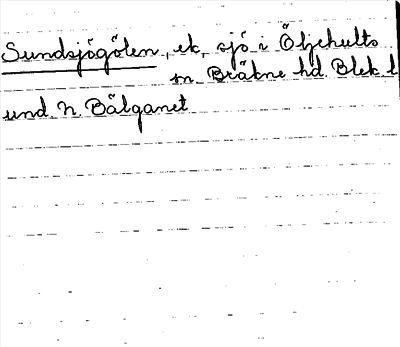 Sundsjögölen, ek, sjö i Öljehults
sn. Bräkne hd. Blek. l
und. n. Bälganet